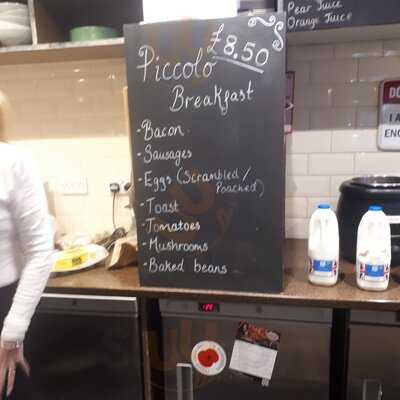 Pear Juice
Orange Juice
£8.50
Piccolo
Breakfast
-Bacon
-Sausages
-Eggs (Scrambled/
Poached)
-Toast
-Tomatoes
-Mushrooms
-Baked beans